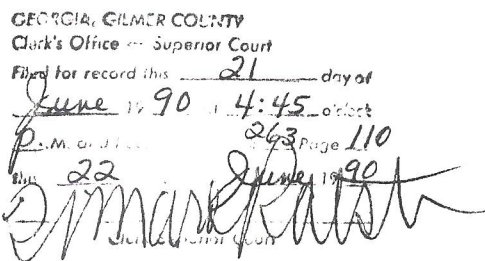 GEORGIA, GILMER COUNTY
Clerk's Office — Superior Court
Filed for record this 21 day of
June 19 90 4:45 o'clock
P.M. and 263 Page 110
this 22 June 1990
Court